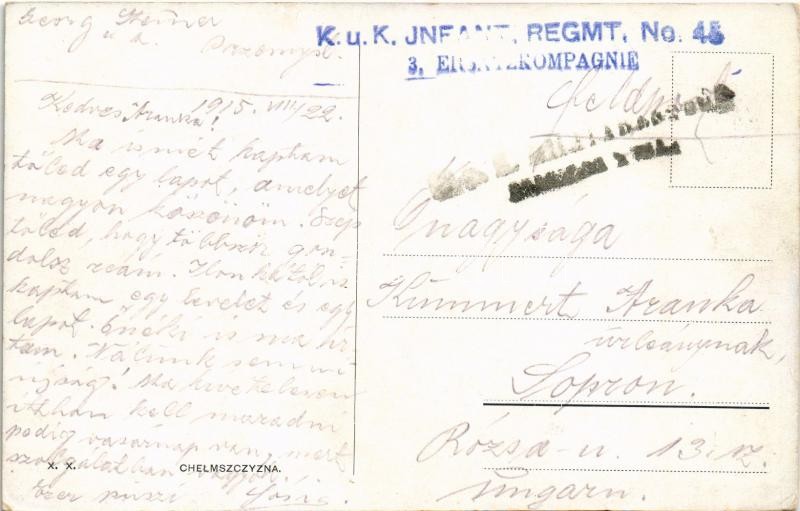 Georg Steiner
u. k. Przemysl.
K. u. K. JNFANT. REGMT. No. 45
3. ERSATZKOMPAGNIE
Feldpost
1915. VIII/22.
Kedves Aranka!
Ma ismét kaptam
tőled egy lapot, amelyet
nagyon köszönöm. Szép
tőled, hogy többször gon-
dolsz reám. Ilonkától is
kaptam egy levelet és egy
lapot. Enéki is ma ír-
tam. Nálunk semmi
újság! Ma kivételesen
itthon kell maradni
pedig vasárnap van, mert
szolgálatban vagyok.
Ezer puszi
K. u. K. MILITÄR
Őnagysága
Kümmert Aranka
úrleánynak,
Sopron.
Rózsa-u. 13. sz.
Ungarn.
X. X. CHELMSZCZYZNA.